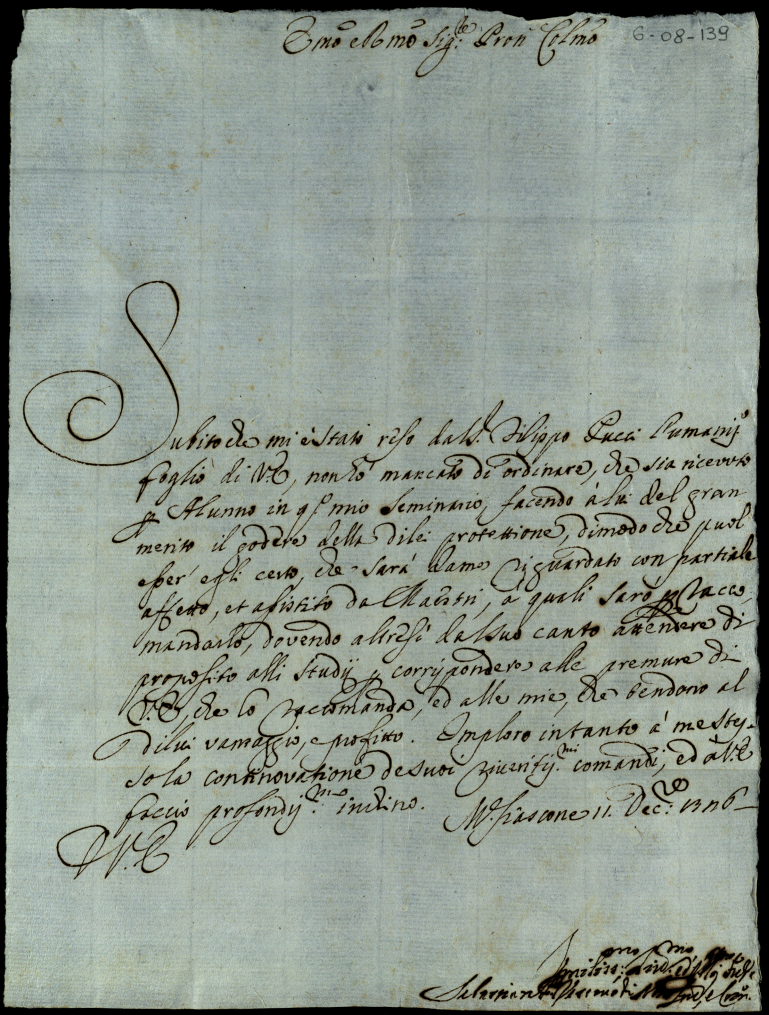 Emo e Rmo Sig.re Pron Colmo
6-08-139
Subito che mi è stato reso dal S.r Filippo Pucci
foglio di V.E., non hò mancato di ordinare, che sia ricevuto
p Alunno in q.o mio Seminario, facendo à lui del gran
merito il godere della dilei protettione, dimodo che puol
esser egli certo, che sarà da me riguardato con partiale
affetto, et assistito da Maestri, à quali sarò p racco
mandarlo, dovendo altresì dal suo canto attendere di
proposito alli studij p corrispondere alle premure di
V.E., che lo raccomanda, ed alle mie, che tendono al
dilui vantaggio, e profitto. Imploro intanto à me stes-
so la continovatione de suoi riveritiss.mi comandi, ed à V.E.
faccio profondiss.mo inchino. M.Fiascone 11. Dec.re
D V.E.